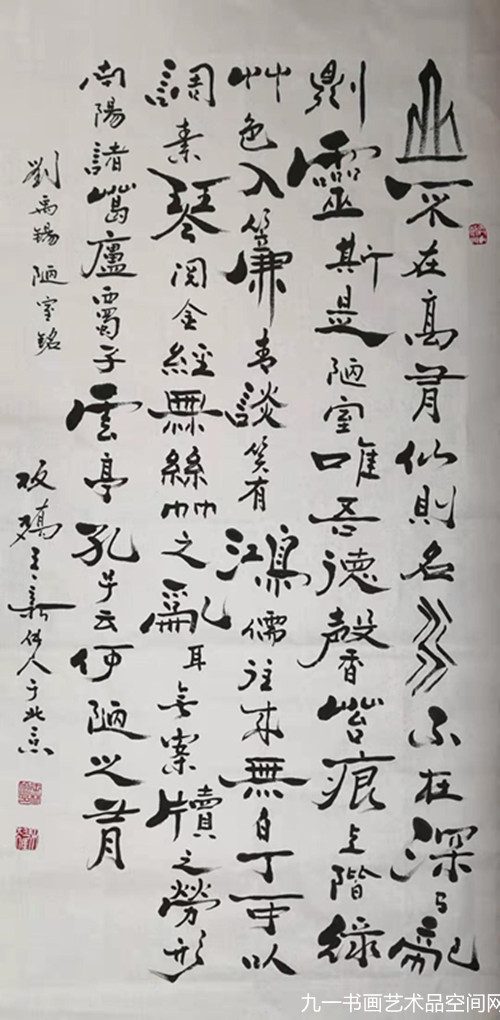 山不在高有仙則名水不在深有龍
則靈斯是陋室唯吾德馨苔痕上階綠
艸色入簾青談笑有鴻儒往來無白丁可以
調素琴閱金經無絲竹之亂耳无案牘之勞形
南陽諸葛廬西蜀子雲亭孔子云何陋之有
劉禹錫 陋室銘
人于北京
九一书画艺术品空间网